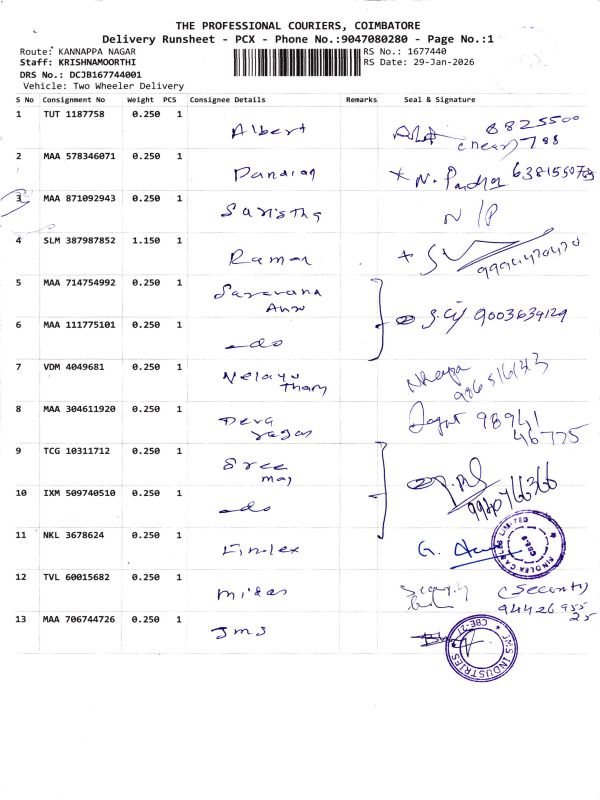 THE PROFESSIONAL COURIERS, COIMBATORE
Delivery Runsheet - PCX - Phone No.:9047080280 - Page No.:1
Route: KANNAPPA NAGAR RS No.: 1677440
Staff: KRISHNAMOORTHI RS Date: 29-Jan-2026
DRS No.: DCJB167744001
Vehicle: Two Wheeler Delivery
S No Consignment No Weight PCS Consignee Details Remarks Seal & Signature
1 TUT 1187758 0.250 1 Albert 8825500
(near) 788
2 MAA 578346071 0.250 1 Pandian N. 6381550789
3 MAA 871092943 0.250 1 N/P
4 SLM 387987852 1.150 1 Raman
9994470470
5 MAA 714754992 0.250 1 Saravana
9003639129
6 MAA 111775101 0.250 1 do
7 VDM 4049681 0.250 1 Velayu
8 MAA 304611920 0.250 1 Deva 98941
46775
9 TCG 10311712 0.250 1 Sree
Maj
9940766366
10 IXM 509740510 0.250 1 do
11 NKL 3678624 0.250 1 Finolex G.
LIMITED
12 TVL 60015682 0.250 1 Midas (Security)
13 MAA 706744726 0.250 1 JMS
JMS INDUSTRIES
CBE-27